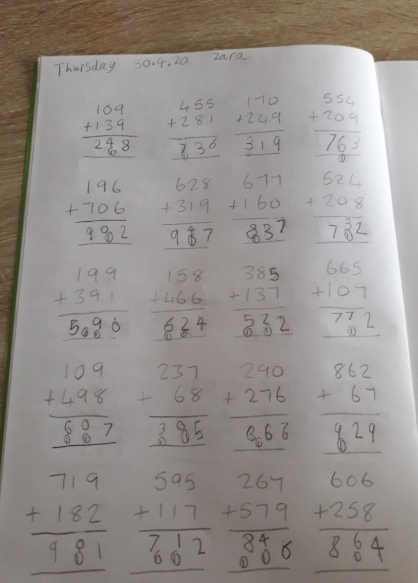 Thursday 30.4.20 Zara
109 455 170 554
+139 +281 +249 +209
248 736 319 763
196 628 677 524
+706 +319 +160 +208
902 947 837 732
199 158 385 665
+391 +466 +137 +107
590 624 522 772
109 237 290 862
+498 + 68 +276 + 67
607 305 666 929
719 595 267 606
+182 +117 +579 +258
981 712 846 864